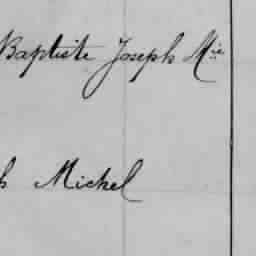 Baptiste Joseph Mie
h Michel